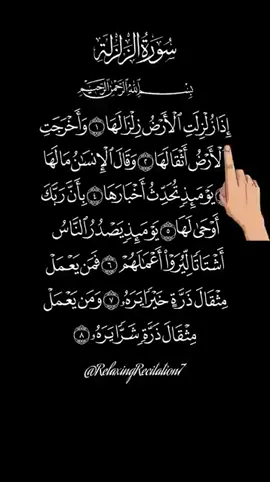 سُورَةُ الزَّلْزَلَةِ
بِسْمِ اللَّهِ الرَّحْمَٰنِ الرَّحِيمِ
إِذَا زُلْزِلَتِ الْأَرْضُ زِلْزَالَهَا ١ وَأَخْرَجَتِ
الْأَرْضُ أَثْقَالَهَا ٢ وَقَالَ الْإِنسَانُ مَا لَهَا
يَوْمَئِذٍ تُحَدِّثُ أَخْبَارَهَا ٤ بِأَنَّ رَبَّكَ
أَوْحَىٰ لَهَا ٥ يَوْمَئِذٍ يَصْدُرُ النَّاسُ
أَشْتَاتًا لِّيُرَوْا أَعْمَالَهُمْ ٦ فَمَن يَعْمَلْ
مِثْقَالَ ذَرَّةٍ خَيْرًا يَرَهُ ٧ وَمَن يَعْمَلْ
مِثْقَالَ ذَرَّةٍ شَرًّا يَرَهُ ٨
@RelaxingRecitation7